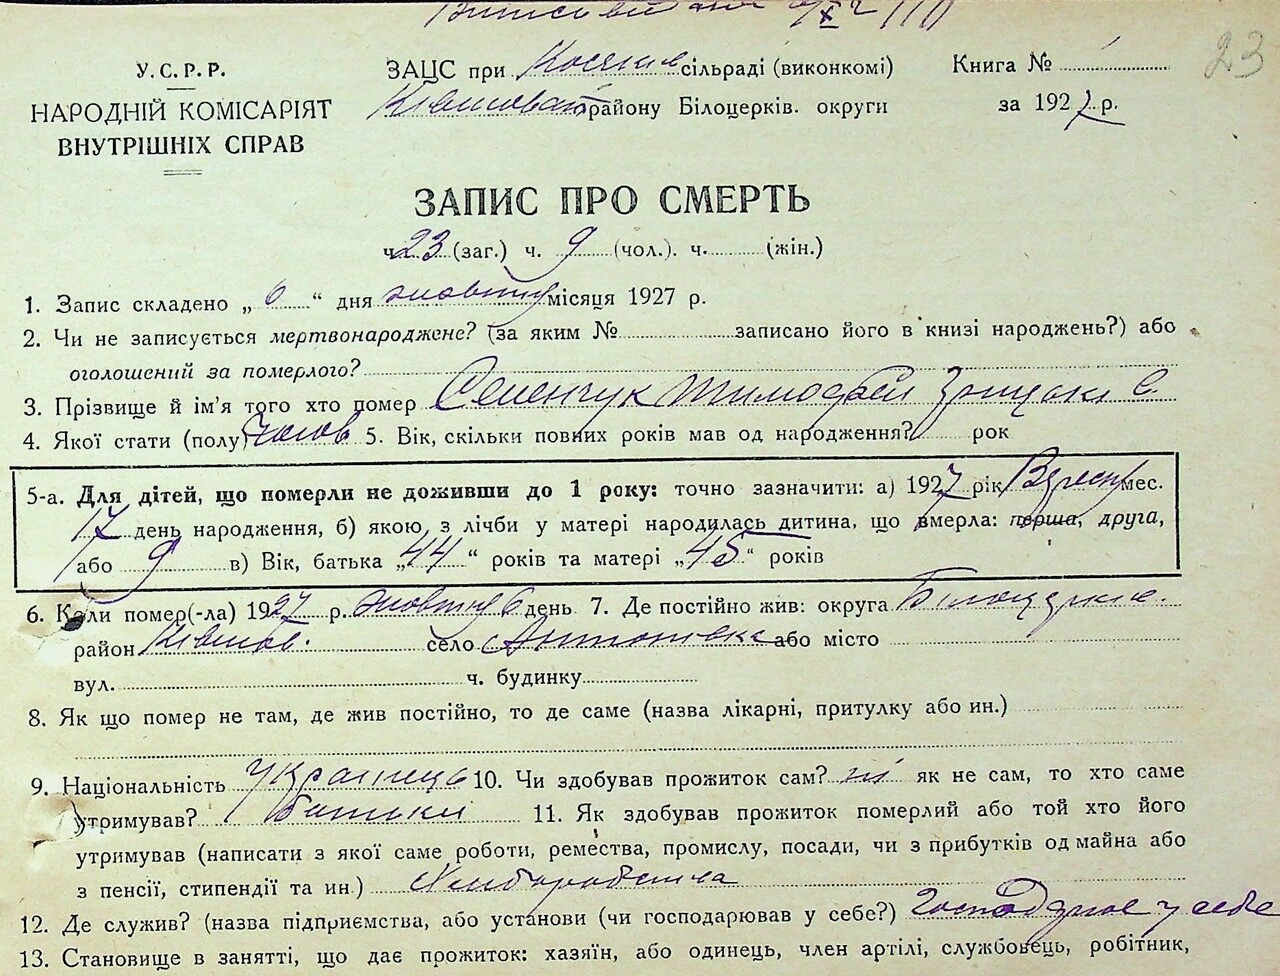 23
У.С.Р.Р.
НАРОДНІЙ КОМІСАРІЯТ
ВНУТРІШНІХ СПРАВ
ЗАЦС при сільраді (виконкомі)
району Білоцерків. округи
Книга №
за 1927 р.
ЗАПИС ПРО СМЕРТЬ
ч. 23 (заг.) ч. 9 (чол.). ч. (жін.)
1. Запис складено „ 6 “ дня жовтня місяця 1927 р.
2. Чи не записується мертвонароджене? (за яким № записано його в книзі народжень?) або
оголошений за померлого?
3. Прізвище й ім'я того хто помер Семенчук Тимофей Грицьків
4. Якої стати (полу) чолов 5. Вік, скільки повних років мав од народження? рок
5-а. Для дітей, що померли не доживши до 1 року: точно зазначити: а) 1927 рік Вересн мес.
17 день народження, б) якою, з лічби у матері народилась дитина, що вмерла: перша, друга,
або 9 в) Вік, батька „44“ років та матері „45“ років
6. Коли помер(-ла) 1927 р. жовтня 6 день 7. Де постійно жив: округа Білоцерків.
район Ківшов. село Антонівка або місто
вул. ч. будинку
8. Як що помер не там, де жив постійно, то де саме (назва лікарні, притулку або ин.)
9. Національність Українець 10. Чи здобував прожиток сам? ні як не сам, то хто саме
утримував? батьки 11. Як здобував прожиток померлий або той хто його
утримував (написати з якої саме роботи, ремества, промислу, посади, чи з прибутків од майна або
з пенсії, стипендії та ин.) Хліборобства
12. Де служив? (назва підприємства, або установи (чи господарював у себе?) у себе
13. Становище в занятті, що дає прожиток: хазяїн, або одинець, член артілі, службовець, робітник,